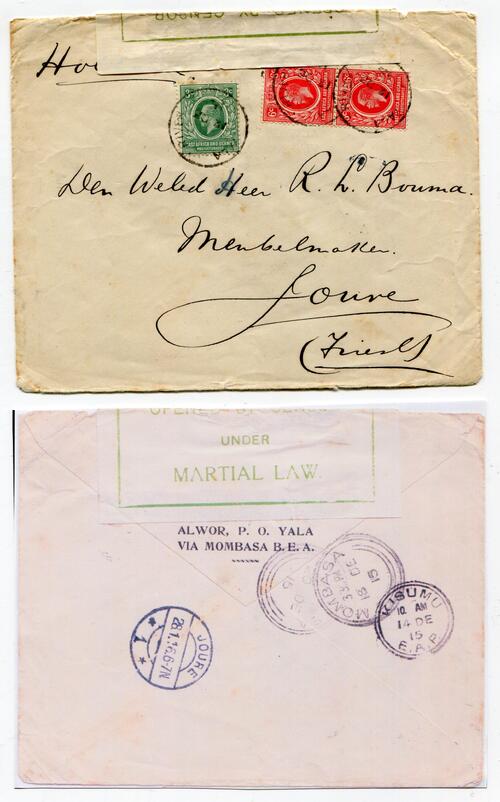 OPENED BY CENSOR
EAST AFRICA AND UGANDA
PROTECTORATES
Den Weled Heer R. L. Bouma.
Meubelmaker.
Joure
(Friesl)
OPENED BY CENSO
UNDER
MARTIAL LAW.
ALWOR, P. O. YALA
VIA MOMBASA B.E.A.
MOMBASA
DE
15
KISUMU
10. AM
14 DE
15
E.A.P.
JOURE
28.1.16.6-7N
* 1 *